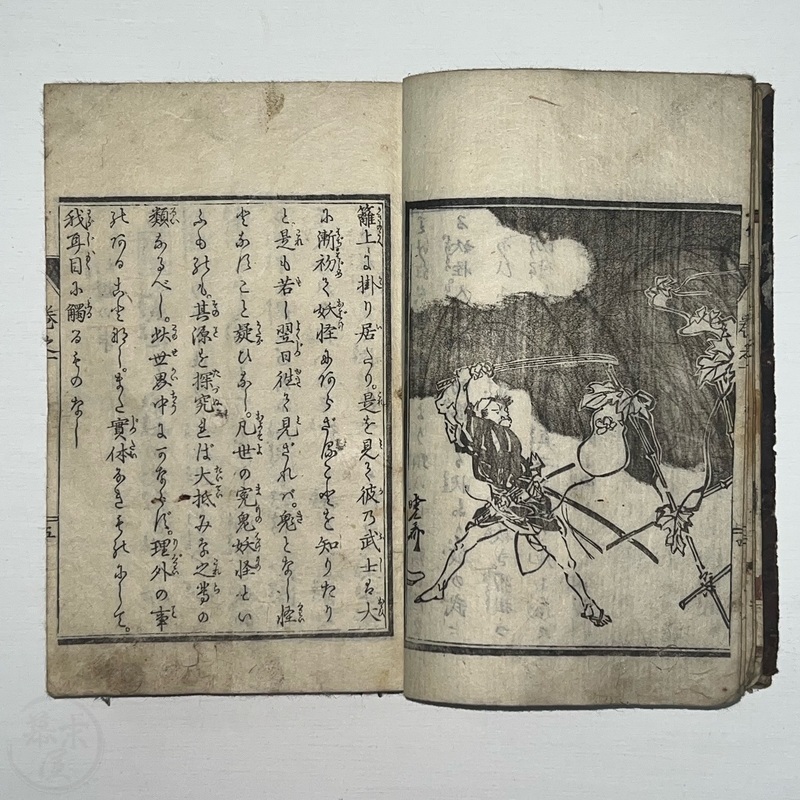 籬上に掛り居たり。是を見て彼乃武士は大
に漸初て妖怪にあらざることを知りたり
と是も若し翌日往て見ざれバ。鬼となし怪
となすこと疑ひなし。凡世の寃鬼妖怪とい
ふものも。其源を探究れば大抵みな之等の
類なるべし。此世界中にかならず。理外の事
のあることなし。また實体なきものにして。
我耳目に觸るものなし
巻之一
五